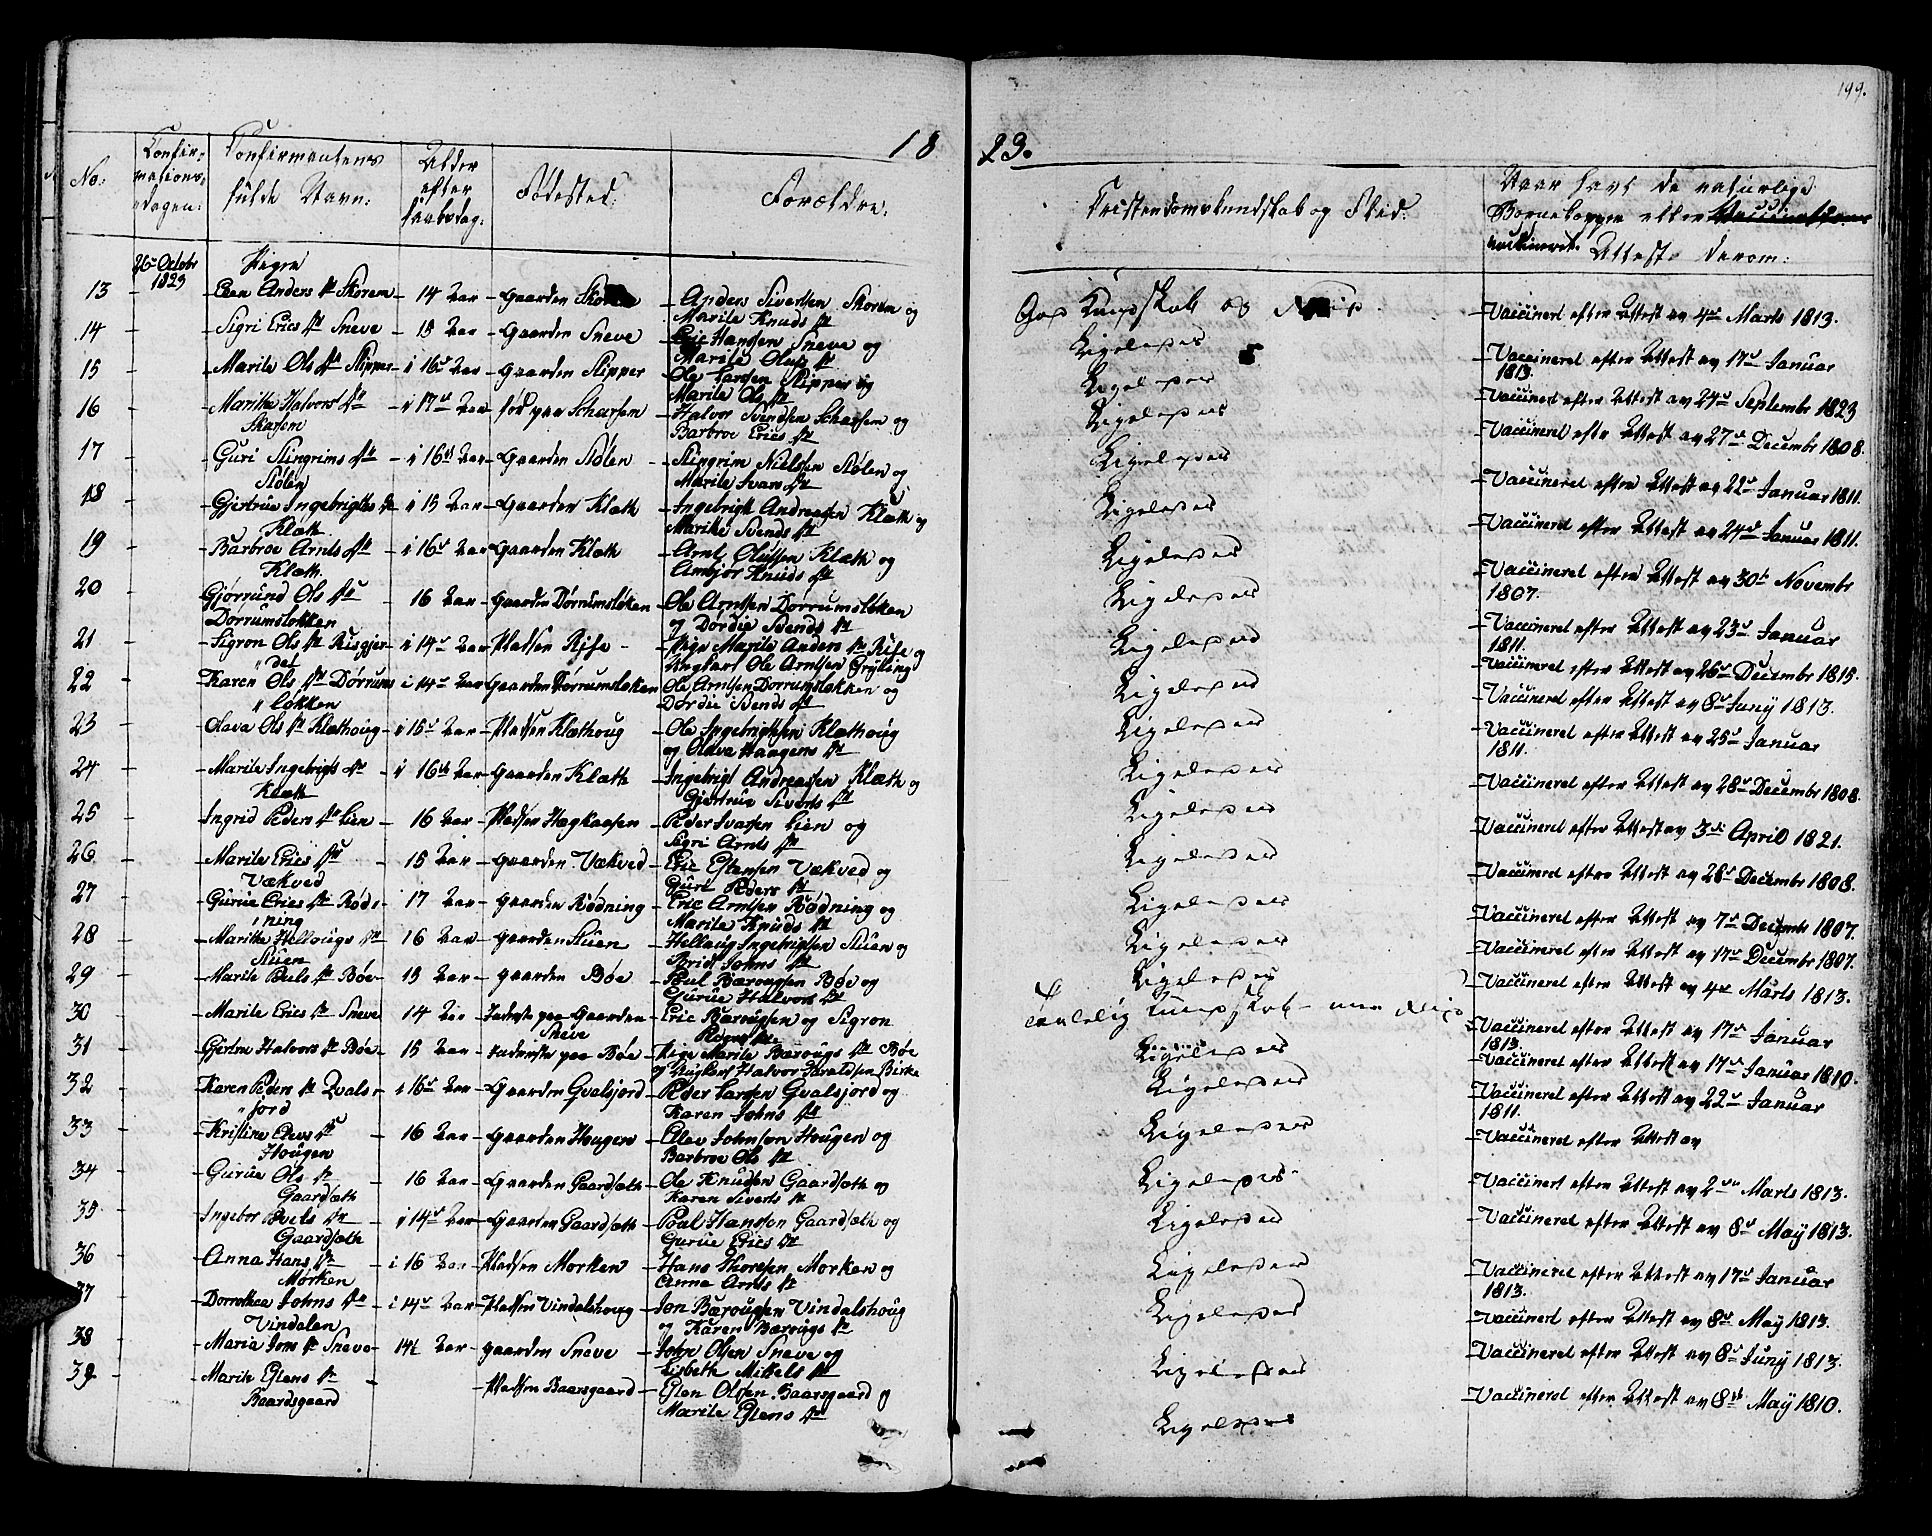 199.
18 23.
No:
Confir-
mations-
dagen:
Confirmantens
fulde Navn:
Alder
efter
Fødested:
Forældre:
Christendomskundskab og Flid:
Naar havt de naturlige
Børnekopper eller
vaccineret. Attest derom:
26de Octobr
1823
Piger
13 - Anders Dr Skorem - 14 Aar - Gaarden - Anders Sivertsen Skorem og
Marite Knuds Dr
God Kundskab og
- Vaccinert efter Attest av 4de Marts 1813.
14 - Sigri Erics Dr Sneve - 15 Aar - Gaarden Sneve - Eric Hansen Sneve og
Marite Olus Dr
Ligeledes
- Vaccineret efter Attest av 17de Januar
1813.
15 - Marite Ols Dr Slipper - i 16de Aar - Gaarden Slipper - Ole Larsen Slipper og
Marite Ols Dr
Ligeledes
- Vaccinert efter Attest av 27de Septembr 1823
16 - Marithe Halvors Dr
Skarsem
- i 17de Aar - fød paa Scharsem - Halvor Svendsen Scharsem og
Barbroe Erics Dr
Ligeledes
- Vaccineret efter Attest av 27de Decembr 1808.
17 - Guri Stingrims Dr
Stølen
- i 16de Aar - Gaarden Stølen - Stingrim Nielsen Stølen og
Marite Ivars Dr
Ligeledes
- Vaccineret efter Attest av 22de Januar 1811.
18 - Gjertrue Ingebrigts Dr
Klæth
- i 15 Aar - Gaarden Klæth - Ingebrigt Andreasen Klæth og
Marithe Svends Dr
Ligeledes
- Vaccineret efter Attest av 24de Januar 1811.
19 - Barbroe Arnts Dr
Klæth.
- i 16de Aar - Gaarden Klæth - Arnt Olussen Klæth og
Ambjør Knuds Dr
Ligeledes
- Vaccineret efter Attest av 30te Novembr
1807.
20 - Gjørrund Ols Dr
Dørrumsløkken
16 Aar - Gaarden Dørrumsløken - Ole Arntsen Dørrumsløken
og Dørdie Svends Dr
Ligeledes
- Vaccineret efter Attest av 23de Januar
1811.
21 - Sigron Ols Dr Risgjer-
det
- i 14de Aar - Pladsen Rise - Pige Marite Anders Dr Rise og
Ungkarl Ole Arntsen Gryting
Ligeledes
- Vaccineret efter Attest av 26de Decembr 1815.
22 - Karen Ols Dr Dørrums
løkken
i 14de Aar - Gaarden Dørrumsløken - Ole Arntsen Dørrumsløkken og
Dørdie Svends Dr
Ligeledes
- Vaccineret efter Attest av 8de Juny 1813.
23 - Olava Ols Dr Klæthoug - i 15de Aar - Pladsen Klæthoug - Ole Ingebrigtsen Klæthoug
og Olava Haagens Dr
Ligeledes
- Vaccineret efter Attest av 25de Januar
1811.
24 - Marite Ingebrigts Dr
Klæth
- i 16de Aar - Gaarden Klæth - Ingebrigt Andreasen Klæth og
Gjertrue Siverts Dr
Ligeledes
- Vaccineret efter Attest av 28de Decembr 1808.
25 - Ingrid Peders Dr Lien - 16 Aar - Pladsen Hægkaasen - Peder Ivarsen Lien og
Sigri Arnts Dr
Ligeledes
- Vaccineret efter Attest av 3de April 1821.
26 - Marite Erics Dr
Vækved
- 15 Aar - Gaarden Vækved - Eric Estensen Vækved og
Guri Peders Dr
Ligeledes
- Vaccineret efter Attest av 28de Decembr 1808.
27 - Gurue Erics Dr Rød-
ning
- 17 Aar - Gaarden Rødning - Eric Arntsen Rødning og
Marite Knuds Dr
Ligeledes
- Vaccineret efter Attest av 7de Decembr 1807.
28 - Marithe Hellougs Dr
Stuen
16 Aar - Gaarden Stuen - Helloug Ingebrigtsen Stuen og
Brid Johns Dr
Ligeledes
- Vaccineret efter Attest av 17de Decembr 1807.
29 - Marite Povels Dr Bøe - 15 Aar - Gaarden Bøe - Poul Bærougsen Bøe og
Gurue Halvors Dr
Ligeledes
- Vaccineret efter Attest av 4de Marts 1813.
30 - Marite Erics Dr Sneve 14 Aar - Inderste paa Gaarden
Sneve
- Eric Bærougsen og Sigron
Roars Dr
Taalelig Kundskab - mere Flid
- Vaccineret efter Attest av 17de Januar
1813.
31 - Gjertru Halvors Dr Bøe - 15 Aar - Inderste paa Bøe - Pige Marite Bærougs Dr Bøe
og Ungkarl Halvor Haraldsen Birke
Ligeledes
- Vaccineret efter Attest av 17de Januar 1810.
32 - Karen Peders Dr Qvals-
jord
- i 16de Aar - Gaarden Gvalsjord - Peder Larsen Gvalsjord og
Karen Johns Dr
Ligeledes
- Vaccineret efter Attest av 22de Januar
1811.
33 - Kristine Elevs Dr
Hougen
- 16 Aar - Gaarden Hougen - Elev Johnsen Hougen og
Barbroe Ols Dr
Ligeledes
- Vaccineret efter Attest av
34 - Gurue Ols Dr
Gaardsæth
16 Aar - Gaarden Gaardsæth - Ole Knudsen Gaardsæth og
Karen Siverts Dr
Ligeledes
- Vaccinert efter Attest av 2den Marts 1813.
35 - Ingebor Povels Dr
Gaardsæth
- i 14de Aar - Gaarden Gaardsæth - Poul Hanssen Gaardsæth og
Gurue Erics Dr
Ligeledes
- Vaccineret efter Attest av 8de May 1813.
36 - Anna Hans Dr
Morken
- i 16 Aar - Pladsen Morken - Hans Thoresen Morken og
Anne Arnts Dr
Ligeledes
- Vaccineret efter Attest av 17de Januar
1813.
37 - Dorrothea Johns Dr
Vindalen
- i 14de Aar - Pladsen Vindalshoug - Jon Bærougsen Vindalshoug
og Karen Bærougs Dr
Ligeledes
- Vaccinert efter Attest av 8de May 1813.
38 - Maria Jons Dr Sneve - 14½ Aar - Gaarden Sneve - John Olsen Sneve og
Lisbeth Mikels Dr
Ligeledes
- Vaccineret efter Attest av 8de Juny 1813.
39 - Marite Estens Dr
Baardsgaard
- Pladsen Baarsgaard - Esten Olsen Baarsgaard og
Marite Estens Dr
Ligeledes
- Vaccineret efter Attest av 8de May 1810.